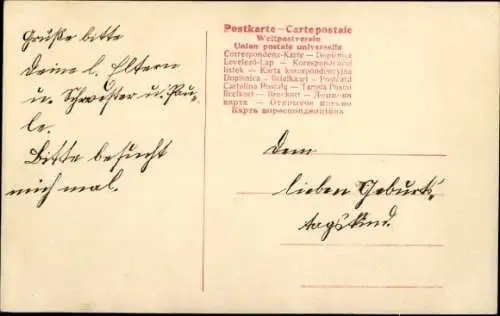 Grüße bitte
Deine l. Eltern
u. Schwester u. Pau-
le.
Bitte besucht
mich mal.
Postkarte – Cartepostale
Weltpostverein
Union postale universelle
Correspondenz-Karte – Dopisnice
Levelező-Lap – Korespondenční
lístek – Karta korespondencyjna
Dopisnica – Briefkaart – Postcard
Cartolina Postale – Tarjeta Postal
Brefkort – Brevkort –
карта – Открытое письмо
Карта
Dem
lieben Geburts-
tagskind.